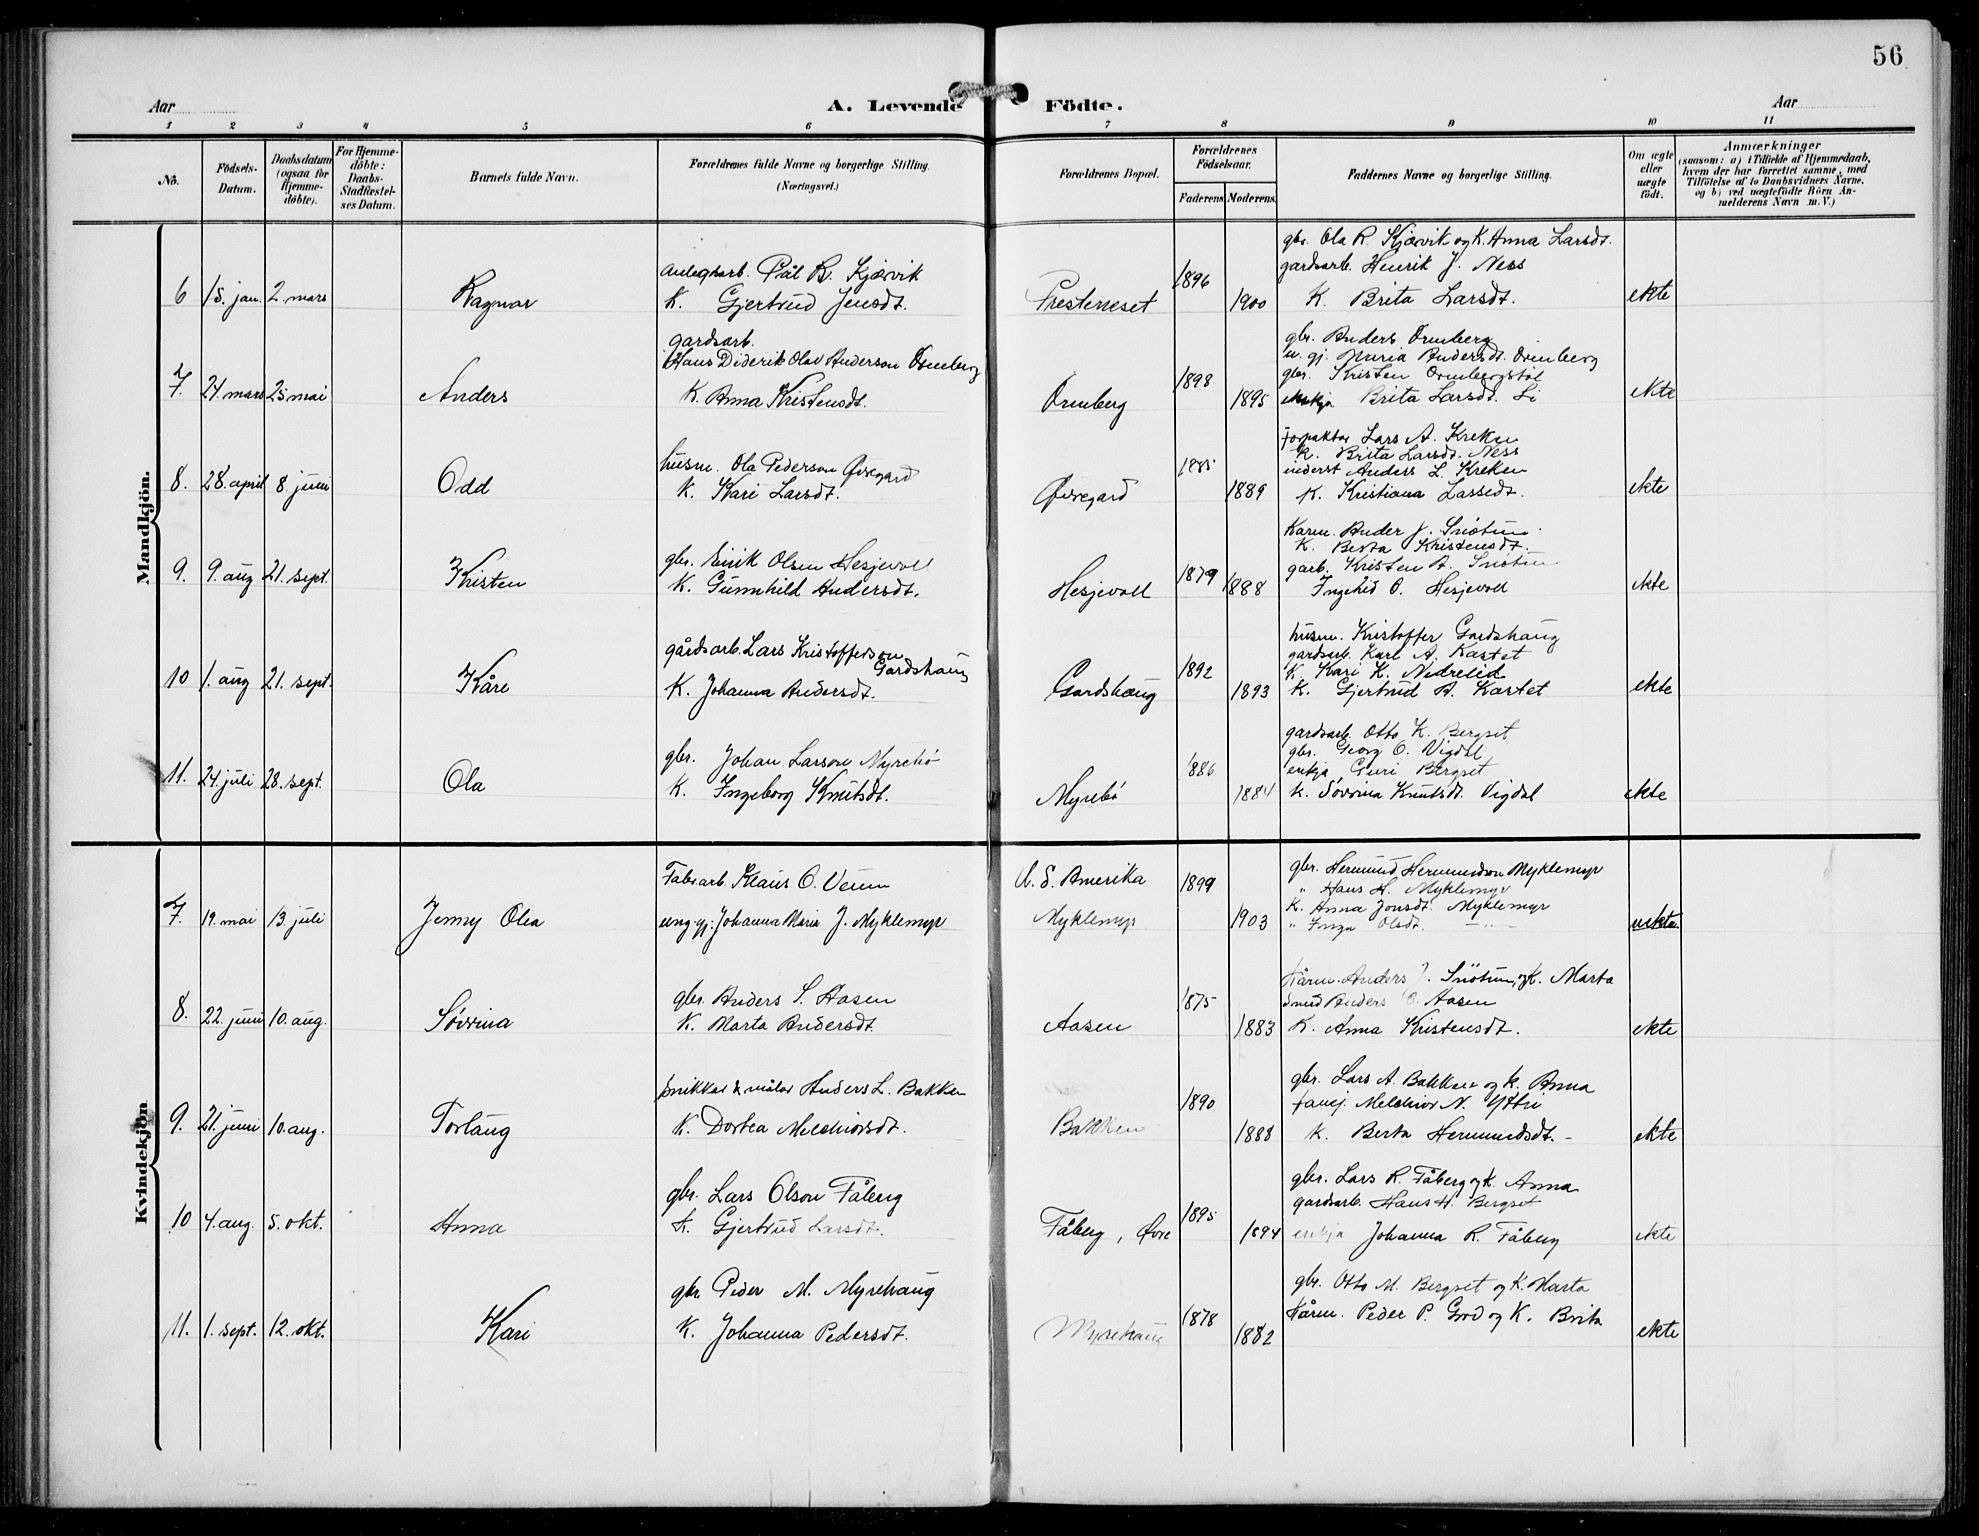 56
Aar
A. Levende Födte.
Aar
1 2 3 4 5 6 7 8 9 10 11
No.
Födsels-Datum.
Daabsdatum (ogsaa for Hjemmedöbte).
For Hjemmedöbte: Daabs-Stadfæstelses Datum.
Barnets fulde Navn.
Forældrenes fulde Navne og borgerlige Stilling. (Næringsvei.)
Forældrenes Bopæl.
Forældrenes Födselsaar.
Faderens Moderens
Faddernes Navne og borgerlige Stilling.
Om ægte eller uægte födt.
Anmærkninger
(saasom: a) i Tilfælde af Hjemmedaab,
hvem der har forrettet samme, med
Tilföielse af to Daabsvidners Navne,
og b) ved uægtefödte Börn An-
melderens Navn m. V.)
Mandkjön.
gbr. Ola R. Kjærvik og K. Anna Larsdt.
anlegsarb. Pål R. Kjærvik
gardsarb. Henrik J. Ness
6 15. jan. 2. mars Ragnar K. Gjertrud Jensdt. Presteneset 1896 1900 K. Brita Larsdt. ekte
gardsarb.
Hans Diderik Olav Anderson Ormberg
gbr. Anders Ormberg
u. gj. Maria Andersdt. Ormberg
gbr. Kristen Ormbergstøl
7. 24. mars 25 mai Anders K. Anna Kristensdt. Ormberg 1898 1895 enkja Brita Larsdt. Li ekte
husm. Ola Pederson Øvregard
forpaktar Lars A. Kreken
K. Brita Larsdt. Ness
inderst Anders L. Kreken
8. 28. april 8. juni Odd K. Kari Larsdt. Øvregard 1885 1889 K. Kristiana Lassedt. ekte
gbr. Eirik Olsen Hesjevoll
Kårm. Ander J. Snøtun
K. Berta Kristensdt.
garb. Kristen A. Snøtun
9. 9. aug 21. sept. Kristen K. Gunnhild Andersdt. Hesjevoll 1879 1888 Ingebid O. Hesjevoll ekte
gårdsarb. Lars Kristofferson Gardshaug
husm. Kristoffer Gardshaug
gardsarb. Karl A. Kastet
K. Kari K. Nedrelid
10 1. aug 21. sept. Kåre K. Johanna Andersdt. Gardshaug 1892 1893 K. Gjertrud A. Kastet ekte
gbr. Johan Larson Myrebø
gardsarb. Otto K. Bergset
gbr. Georg O. Vigdal
enkja Guri Bergset
11. 24. juli 28. sept. Ola K. Ingeborg Knutsdt. Myrebø 1886 1884 K. Søvrina Knutsdt. Vigdal ekte
Kvindekjön
Fabr.arb. Klaus O. Veum U. S. Amerika 1899
gbr. Hermund Hermundson Myklemyr
" Hans H. Myklemyr
K. Anna Jonsdt. Myklemyr
7. 19. mai 13. juli Jenny Olea ung. gj: Johanna Maria J. Myklemyr Myklemyr 1903 " Inga Olsdt. —"— uekte
gbr. Anders S. Aasen
Kårm. Anders J. Snøtun og K. Marta
smed Anders O. Aasen
8. 22. juni 10. aug. Søvrina K. Marta Andersdt. Aasen 1875 1883 K. Anna Kristensdt. ekte
snikkar & målar Anders L. Bakken
gbr. Lars A. Bakken og K. Anna
fansj. Melchior N. Ytri
9. 21. juni 10. aug. Torlaug K. Dortea Melchiorsdt. Bakken 1890 1888 K. Berta Hermundsdt. ekte
gbr. Lars Olson Fåberg
gbr. Lars R. Fåberg og K. Anna
gardsarb. Hans H. Bergset
10 4. aug. 5. okt. Anna K. Gjertrud Larsdt. Fåberg, Øvre 1895 1894 enkja Johanna R. Fåberg ekte
gbr. Peder M. Myrehaug
gbr. Otto M. Bergset og K. Marta
Kårm. Peder P. Grod og K. Brita
11. 1. sept. 12. okt. Kari K. Johanna Pedersdt. Myrehaug 1878 1882 ekte